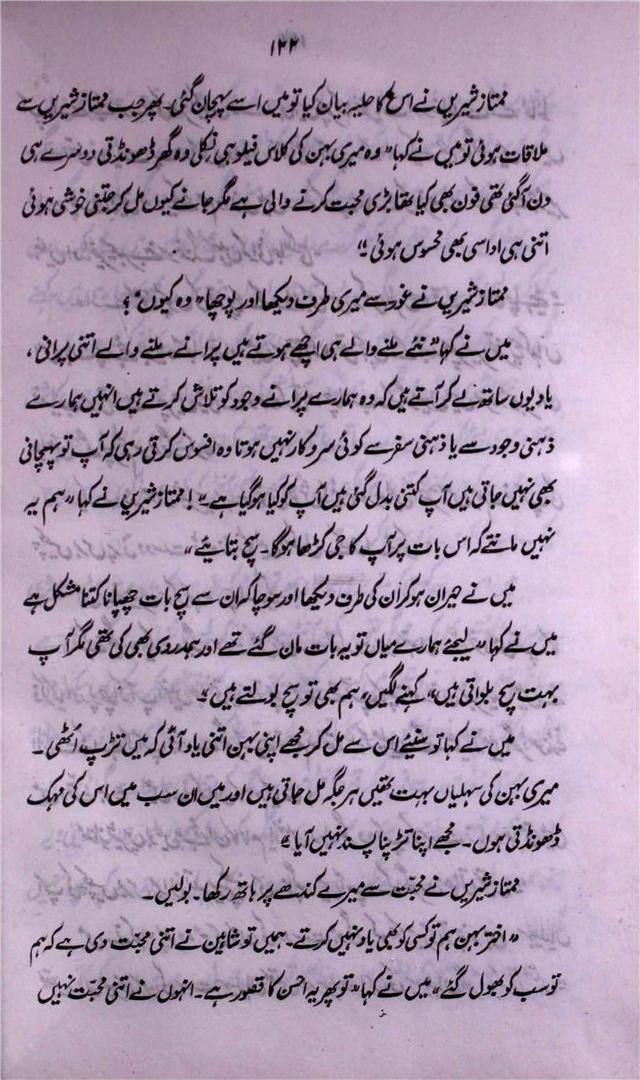 ۱۲۲
ممتاز شیریں نے اس کا حلیہ بیان کیا تو میں اسے پہچان گئی۔ پھر جب ممتاز شیریں سے
ملاقات ہوئی تو میں نے کہا "وہ میری بہن کی کلاس فیلو ہی نکلی وہ گھر ڈھونڈتی دوسرے ہی
دن آ گئی تھی فون بھی کیا تھا بڑی محبت کرنے والی ہے مگر جانے کیوں مل کر جتنی خوشی ہوئی
اتنی ہی اداسی بھی محسوس ہوئی"!
ممتاز شیریں نے غور سے میری طرف دیکھا اور پوچھا "وہ کیوں"؟
میں نے کہا "نئے ملنے والے ہی اچھے ہوتے ہیں پرانے ملنے والے اتنی پرانی،
یادیں ساتھ لے کر آتے ہیں کہ وہ ہمارے پرانے وجود کو تلاش کرتے ہیں انہیں ہمارے
ذہنی وجود سے یا ذہنی سفر سے کوئی سروکار نہیں ہوتا وہ افسوس کرتی رہی کہ آپ تو پہچانی
بھی نہیں جاتی ہیں آپ کتنی بدل گئی ہیں آپ کو کیا ہو گیا ہے۔"! ممتاز شیریں نے کہا "ہم یہ
نہیں مانتے کہ اس بات پر آپ کا جی کڑھا ہوگا۔ سچ بتائیے"
میں نے حیران ہو کر ان کی طرف دیکھا اور سوچا کہ ان سے سچ بات چھپانا کتنا مشکل ہے
میں نے کہا "لیجئے ہمارے میاں تو یہ بات مان گئے تھے اور ہمدردی بھی کی تھی مگر آپ
بہت سچ بلواتی ہیں" کہنے لگیں "ہم بھی تو سچ بولتے ہیں"
میں نے کہا تو سنیئے اس سے مل کر مجھے اپنی بہن اتنی یاد آئی کہ میں تڑپ اُٹھی۔
میری بہن کی سہلیاں بہت تھیں ہر جگہ مل جاتی ہیں اور میں ان سب میں اس کی مہک
ڈھونڈتی ہوں۔ مجھے اپنا تڑپنا پسند نہیں آیا"
ممتاز شیریں نے محبّت سے میرے کندھے پر ہاتھ رکھا۔ بولیں۔
"اختر بہن ہم تو کسی کو بھی یاد نہیں کرتے۔ ہمیں تو شاہین نے اتنی محبّت دی ہے کہ ہم
تو سب کو بھول گئے" میں نے کہا "تو پھر یہ احسن کا قصور ہے۔ انہوں نے اتنی محبّت نہیں